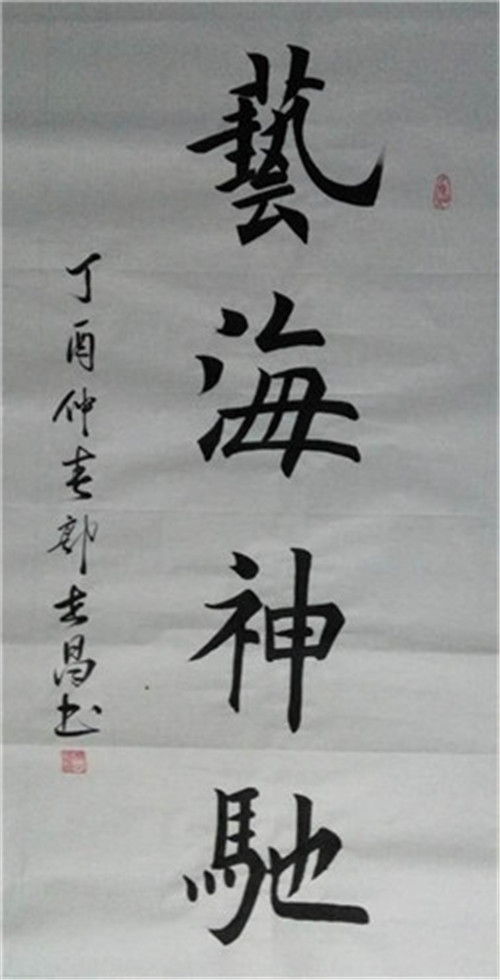 藝海神馳
丁酉仲春郭志昌书